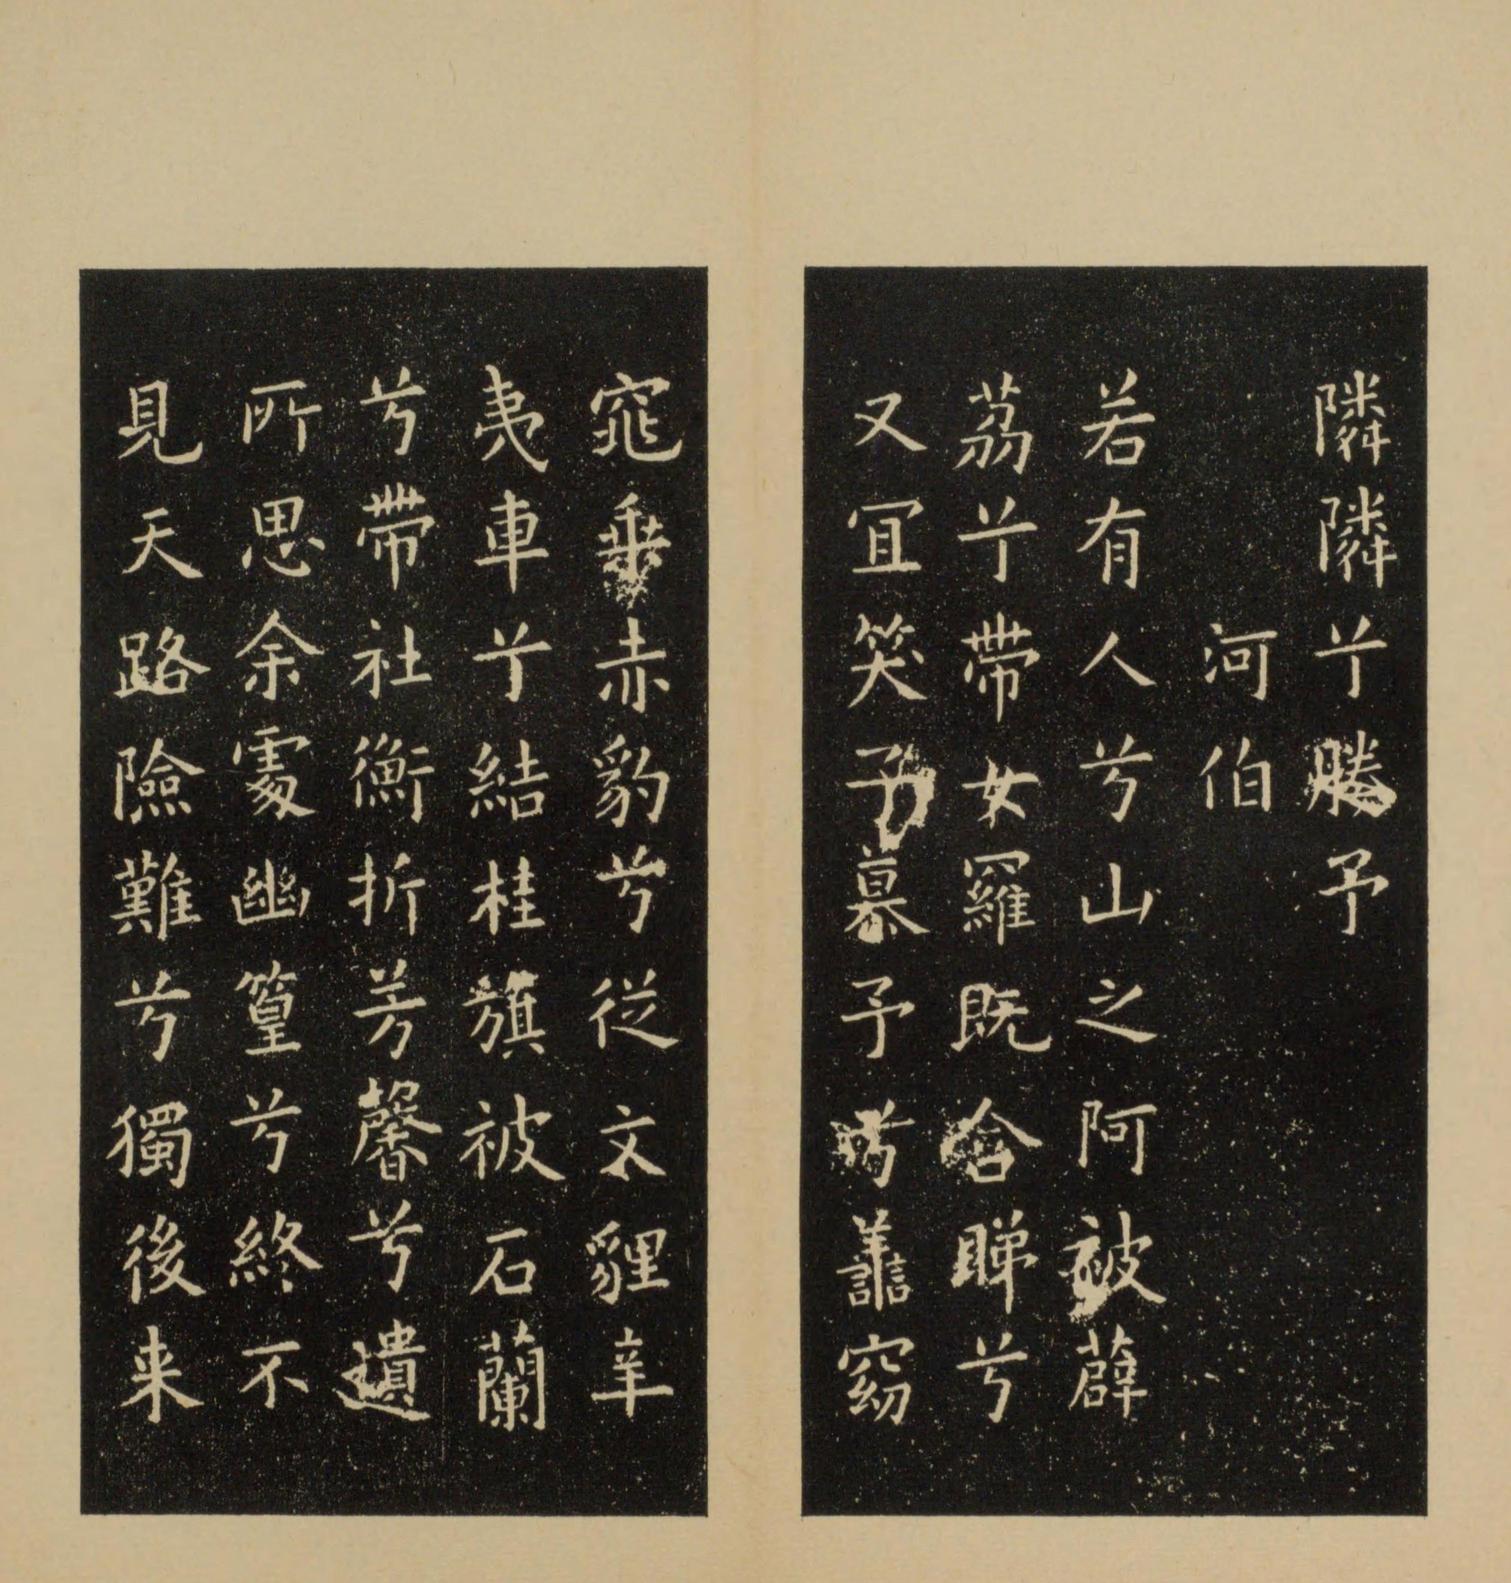 隣隣兮媵予
河伯
若有人兮山之阿被薜
荔兮帶女羅既含睇兮
又宜笑子慕予兮善窈
窕乗赤豹兮從文貍辛
夷車兮結桂旗被石蘭
兮帶杜衡折芳馨兮遺
所思余處幽篁兮終不
見天路險難兮獨後来